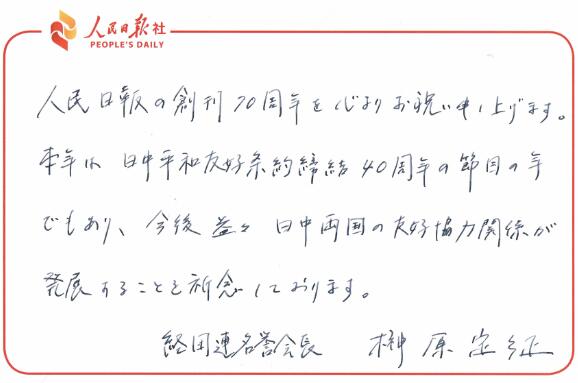 人民日报社
PEOPLE'S DAILY
人民日報の創刊70周年を心よりお祝い申し上げます。
本年は 日中平和友好条約締結40周年の節目の年
でもあり、今後 益々 日中両国の友好協力関係が
発展することを祈念しております。
経団連名誉会長 榊原定征